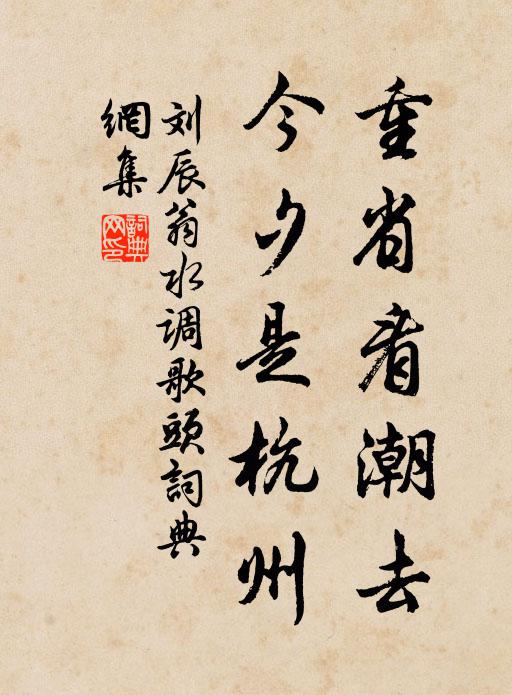 重省看潮去
今夕是杭州
刘辰翁水调歌頭詞典
網集
詞典网印